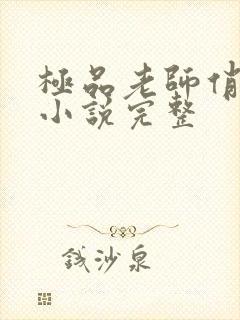 極品老師俏
小說完整
錢沙泉